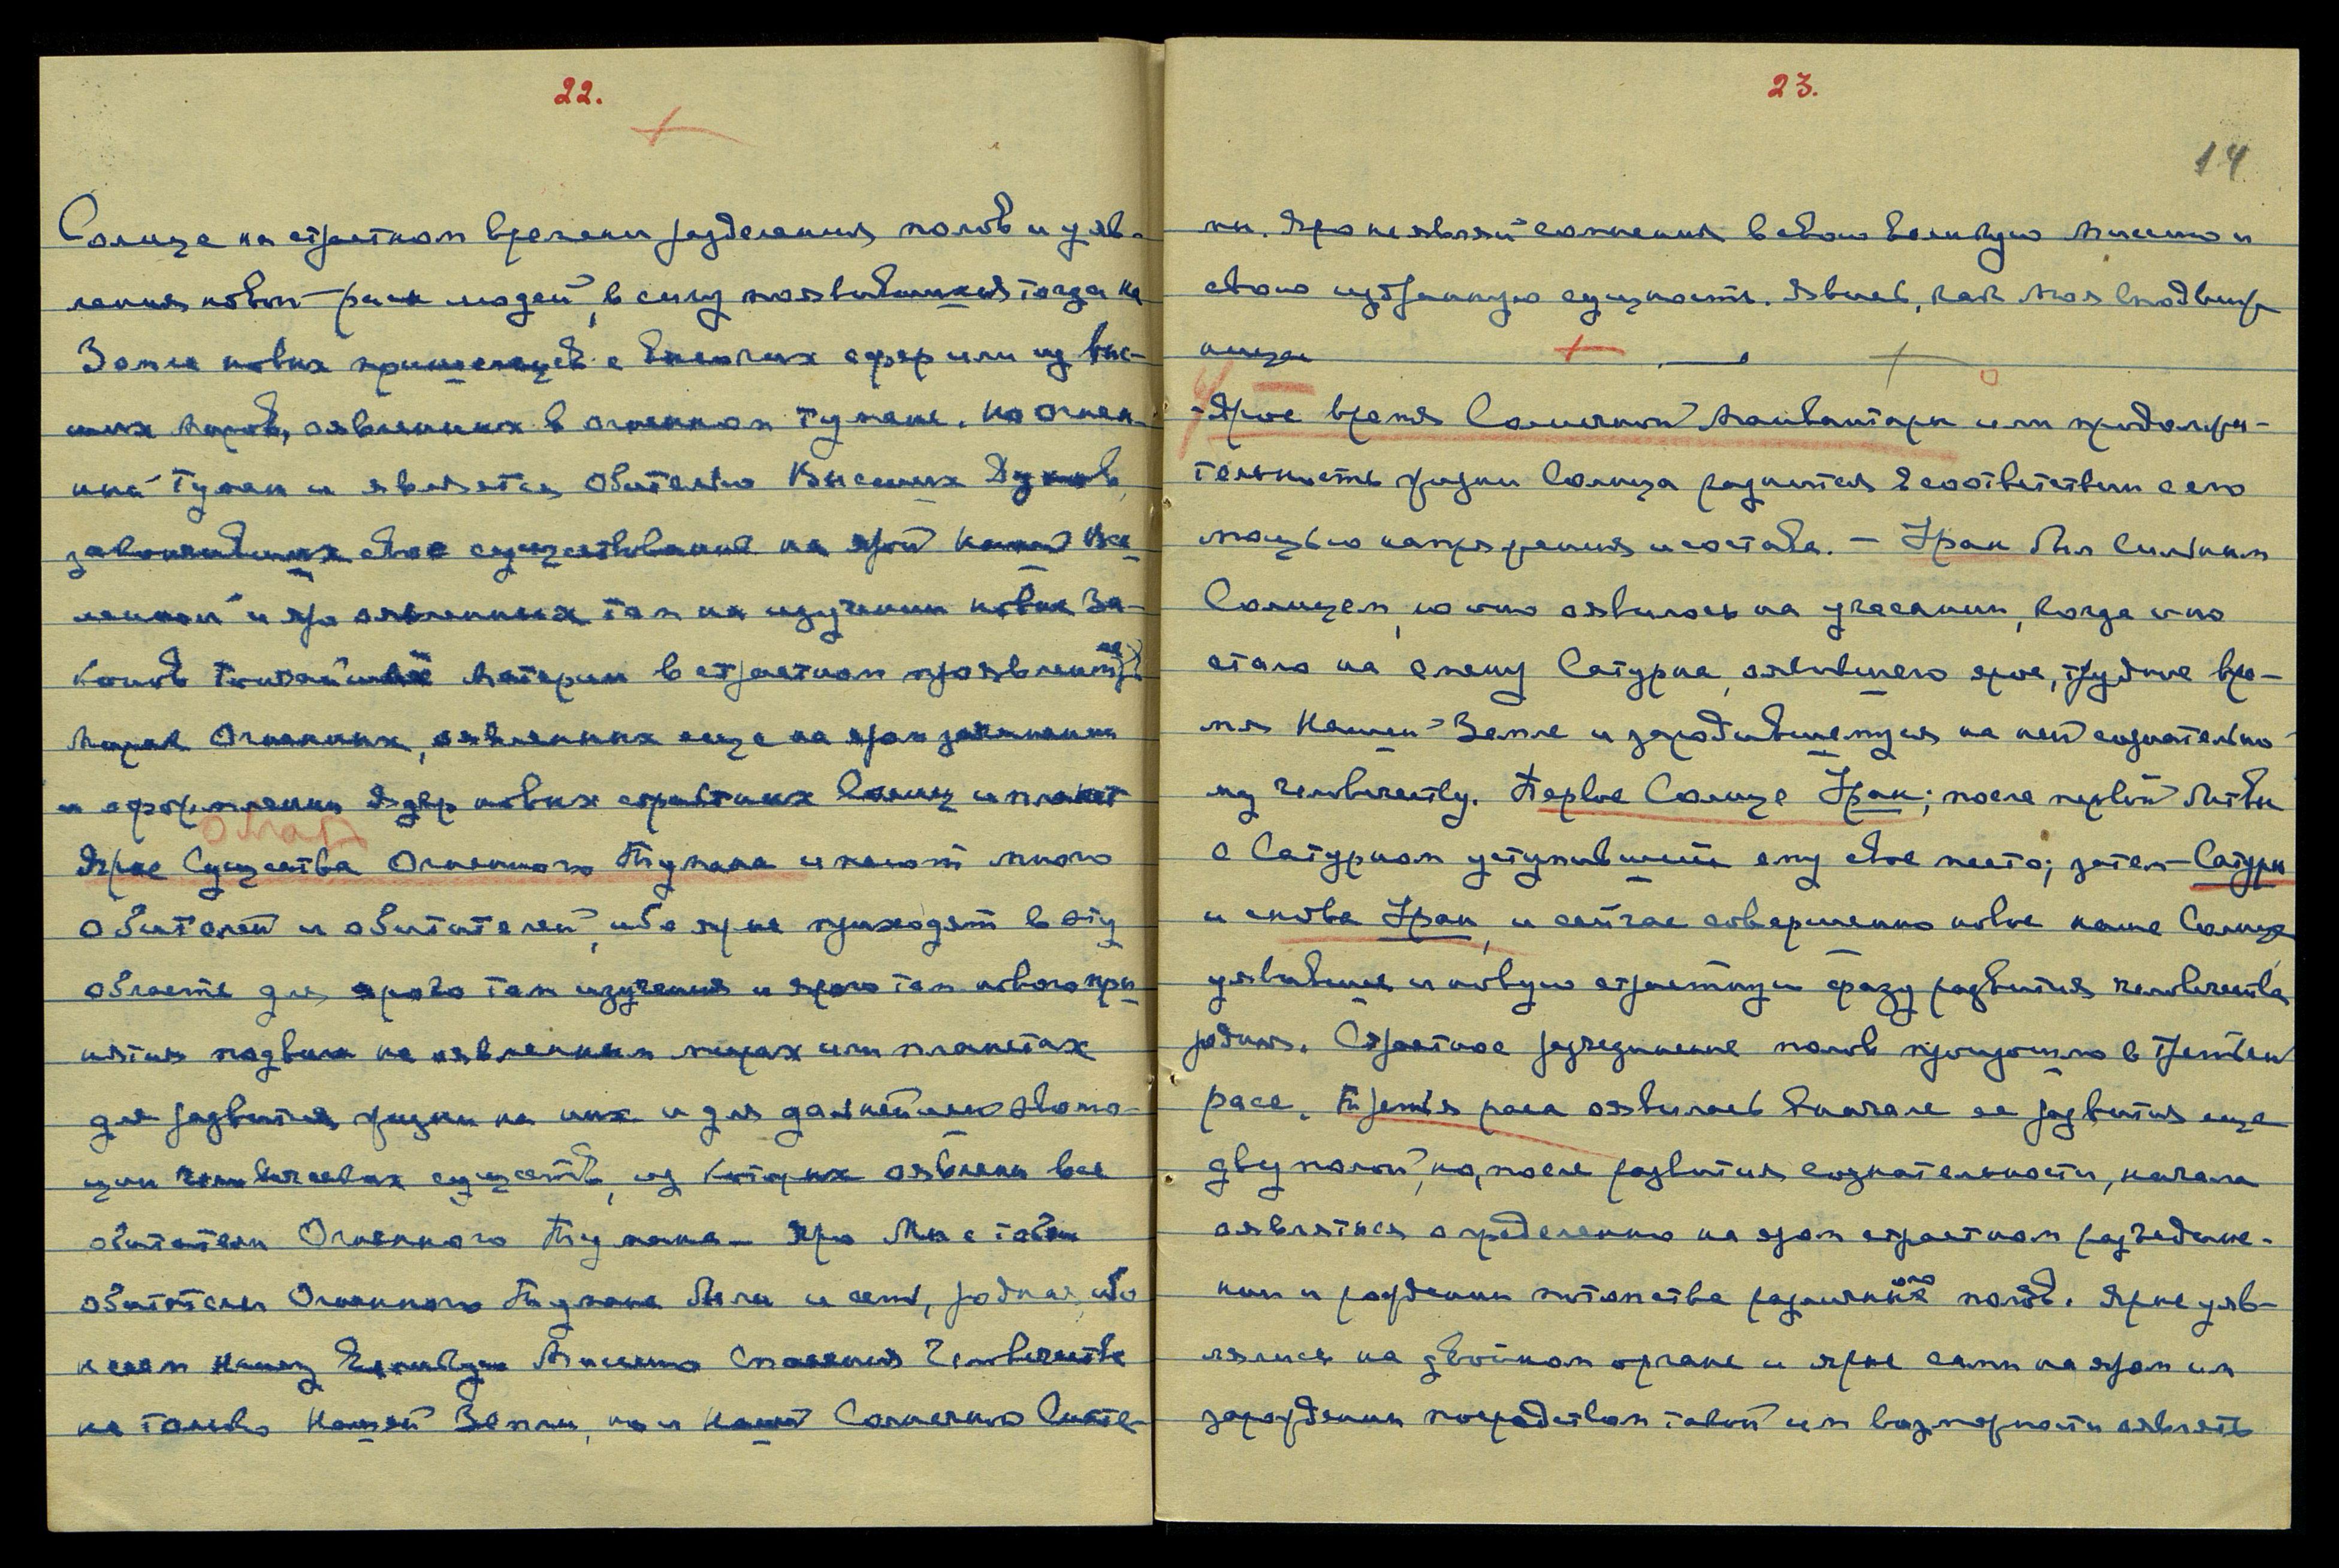 22.
Солнце на страстном времени разделения полов и уяв-
ления новой расы людей, в силу появившихся тогда на
Земле новых пришельцев с Высших сфер или из выс-
ших миров, оявленных в огненном тумане. Но огнен-
ный туман и является обителью Высших Духов,
закончивших свое существование на ярой нашей Все-
ленной и яро оявленных там на изучении новых За-
конов Тончайшей Материи в страстном проявлении
мирах Огненных, оявленных еще на яром зачинании
и оформлении Ядер новых страстных Солнц и планет
Ярые Существа Огненного Тумана имеют много
обителей и обитателей, ибо ярые приходят в эту
область для ярого там изучения и ярого там нового при-
нятия подвига на оявленных мирах или планетах
для развития жизни на них и для дальнейшей эволю-
ции человеческих существ, из которых оявлены все
обитатели Огненного Тумана. Яро Мы с тобою
обитатели Огненного Тумана были и есть, родная, ибо
несем нашу Великую Миссию Спасения Человечества
не только Нашей Земли, но и Нашей Солнечной Систе-
23.
14
мы. Яро не являй сомнения в свою Великую Миссию и
свою избранную сущность. Явись, как Моя Сподвиж
ница
-Ярое время Солнечной Манвантары или продолжи-
тельность жизни Солнца разнится в соответствии с его
мощью напряжения и состава. – Уран был Сильным
Солнцем, но оно оявилось на угасании, когда оно
стало на смену Сатурна, оявившего ярое, трудное вре-
мя Нашей Земле и зародившемуся на ней сознательно-
му человечеству. Первое Солнце Уран; после первой битвы
с Сатурном уступивший ему свое место; затем – Сатурн
и снова Уран, и сейчас совершенно новое наше Солнце,
уявившее и новую страстную фазу развития человечества
родная. Страстное разъединение полов произошло в третьей
расе. Третья раса оявилась вначале ее развития еще
двуполой, но, после развития сознательности, начала
оявляться определенно на яром страстном разъедине-
нии и рождении потомства полов. Ярые уяв-
лялись на двойном органе и ярые сами на яром их
зарождении посредством такой им возможности оявлять